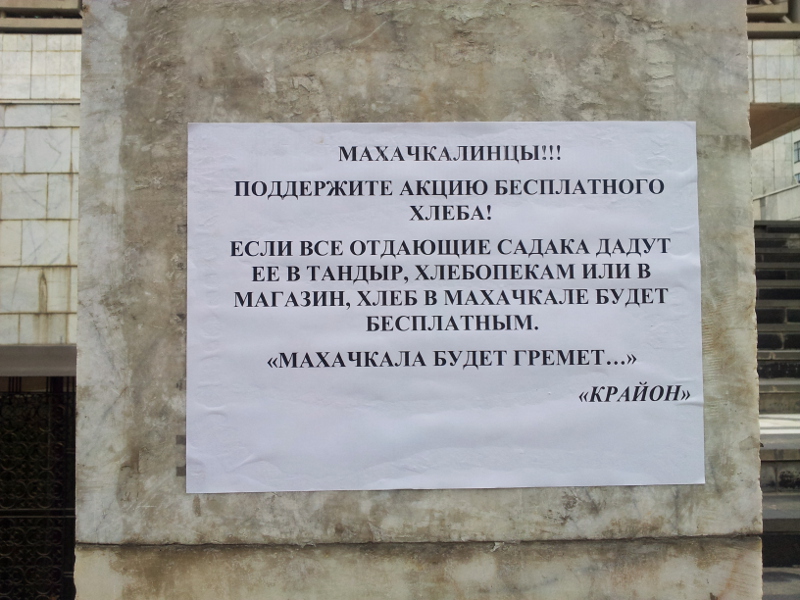 МАХАЧКАЛИНЦЫ!!!
ПОДДЕРЖИТЕ АКЦИЮ БЕСПЛАТНОГО
ХЛЕБА!
ЕСЛИ ВСЕ ОТДАЮЩИЕ САДАКА ДАДУТ
ЕЕ В ТАНДЫР, ХЛЕБОПЕКАМ ИЛИ В
МАГАЗИН, ХЛЕБ В МАХАЧКАЛЕ БУДЕТ
БЕСПЛАТНЫМ.
«МАХАЧКАЛА БУДЕТ ГРЕМЕТ...»
«КРАЙОН»